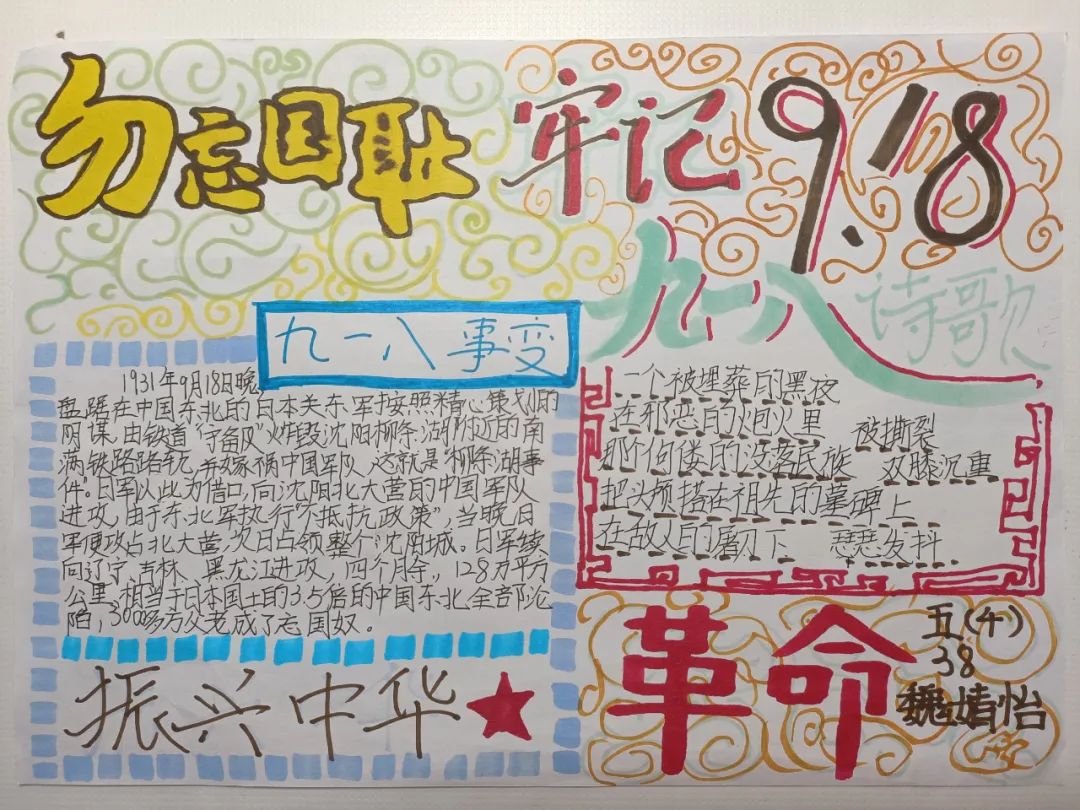 勿忘国耻 牢记 9.18
九一八事变
1931年9月18日晚,
盘踞在中国东北的日本关东军按照精心策划的
阴谋,由铁道"守备队"炸毁沈阳柳条湖附近的南
满铁路路轨,并嫁祸中国军队,这就是"柳条湖事
件"。日军以此为借口,向沈阳北大营的中国军队
进攻,由于东北军执行"不抵抗政策",当晚日
军便攻占北大营,次日占领整个沈阳城。日军续
向辽宁、吉林、黑龙江进攻,四个月余,128万平方
公里,相当于日本国土的3.5倍的中国东北全部沦
陷,3000多万父老成了忘国奴。
振兴中华
九一八诗歌
一个被埋葬的黑夜
在邪恶的炮火里 被撕裂
那个佝偻的没落民族 双膝沉重
把头颅搭在祖先的墓碑上
在敌人的屠刀下 瑟瑟发抖
革命
五(4)
38
魏婧怡